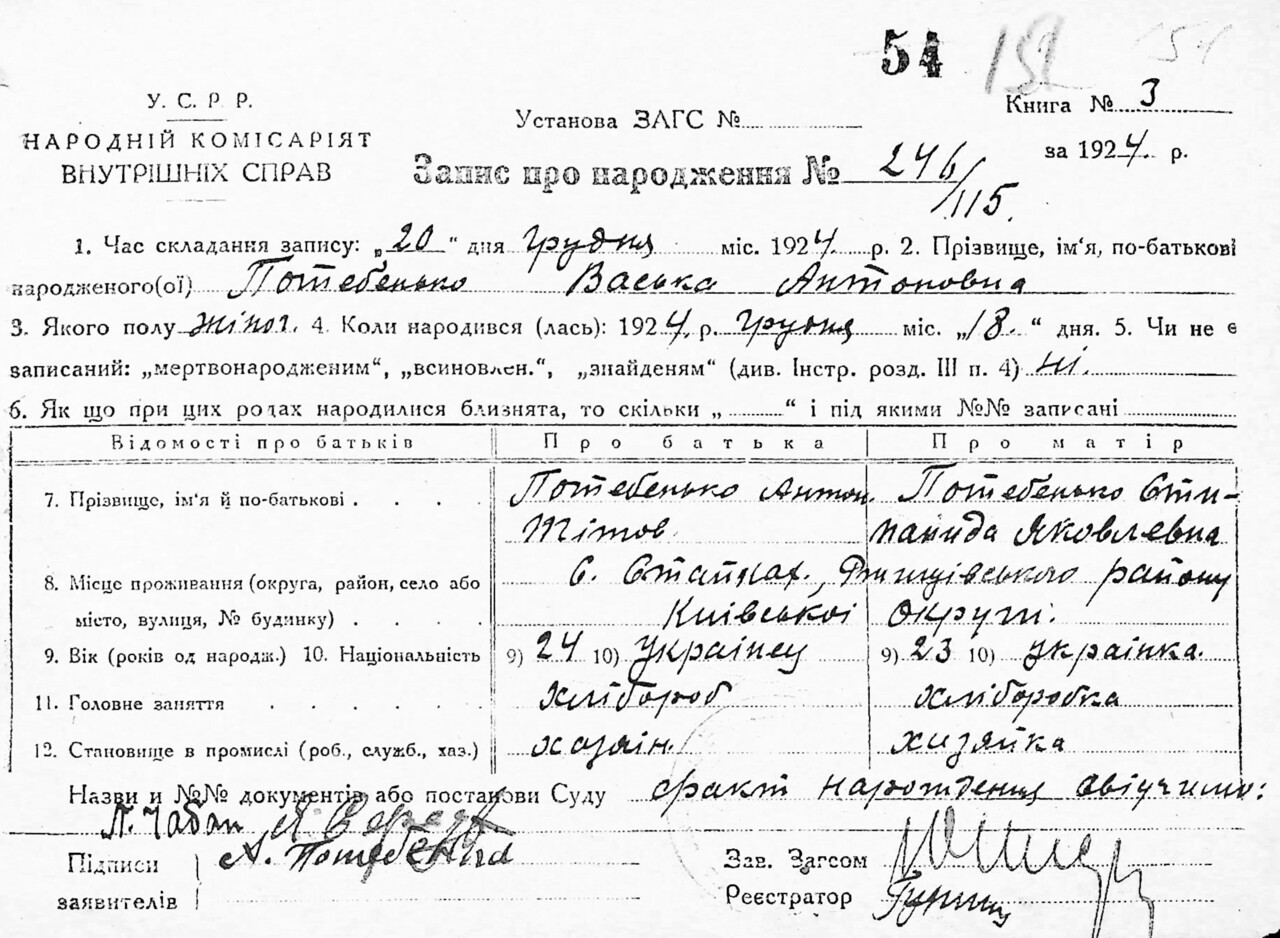 54 152 154
У. С. Р. Р.
НАРОДНІЙ КОМІСАРІЯТ
ВНУТРІШНІХ СПРАВ
Установа ЗАГС №
Книга № 3
за 1924. р.
Запис про народження № 246/115.
1. Час складання запису: „20“ дня грудня міс. 1924 р. 2. Прізвище, ім'я, по-батькові
народженого(ої) Потебенько Васька Антоновна
3. Якого полу жіноч. 4. Коли народився (лась): 1924 р. грудня міс. „18.“ дня. 5. Чи не є
записаний: „мертвонародженим“, „всиновлен.“, „знайденям“ (див. Інстр. розд. III п. 4) ні.
6. Як що при цих родах народилися близнята, то скільки „ “ і під якими №№ записані
Відомості про батьків Про батька Про матір
7. Прізвище, ім'я й по-батькові . . . . Потебенько Антон Потебенько Сти-
Тітов. панида Яковлевна
8. Місце проживання (округа, район, село або с. Стайках, района
місто, вулиця, № будинку) . . . . Київської округи.
9. Вік (років од народж.) 10. Національність 9) 24 10) Украінец 9) 23 10) украінка.
11. Головне заняття . . . . . . хлібороб хліборобка
12. Становище в промислі (роб., служб., хаз.) хозяін. хизяйка
Назви и №№ документів або постанови Суду факт нарождения свідчимо:
Л. Чабан Я Середа
Підписи А. Потебенько
заявителів
Зав. Загсом
Реєстратор